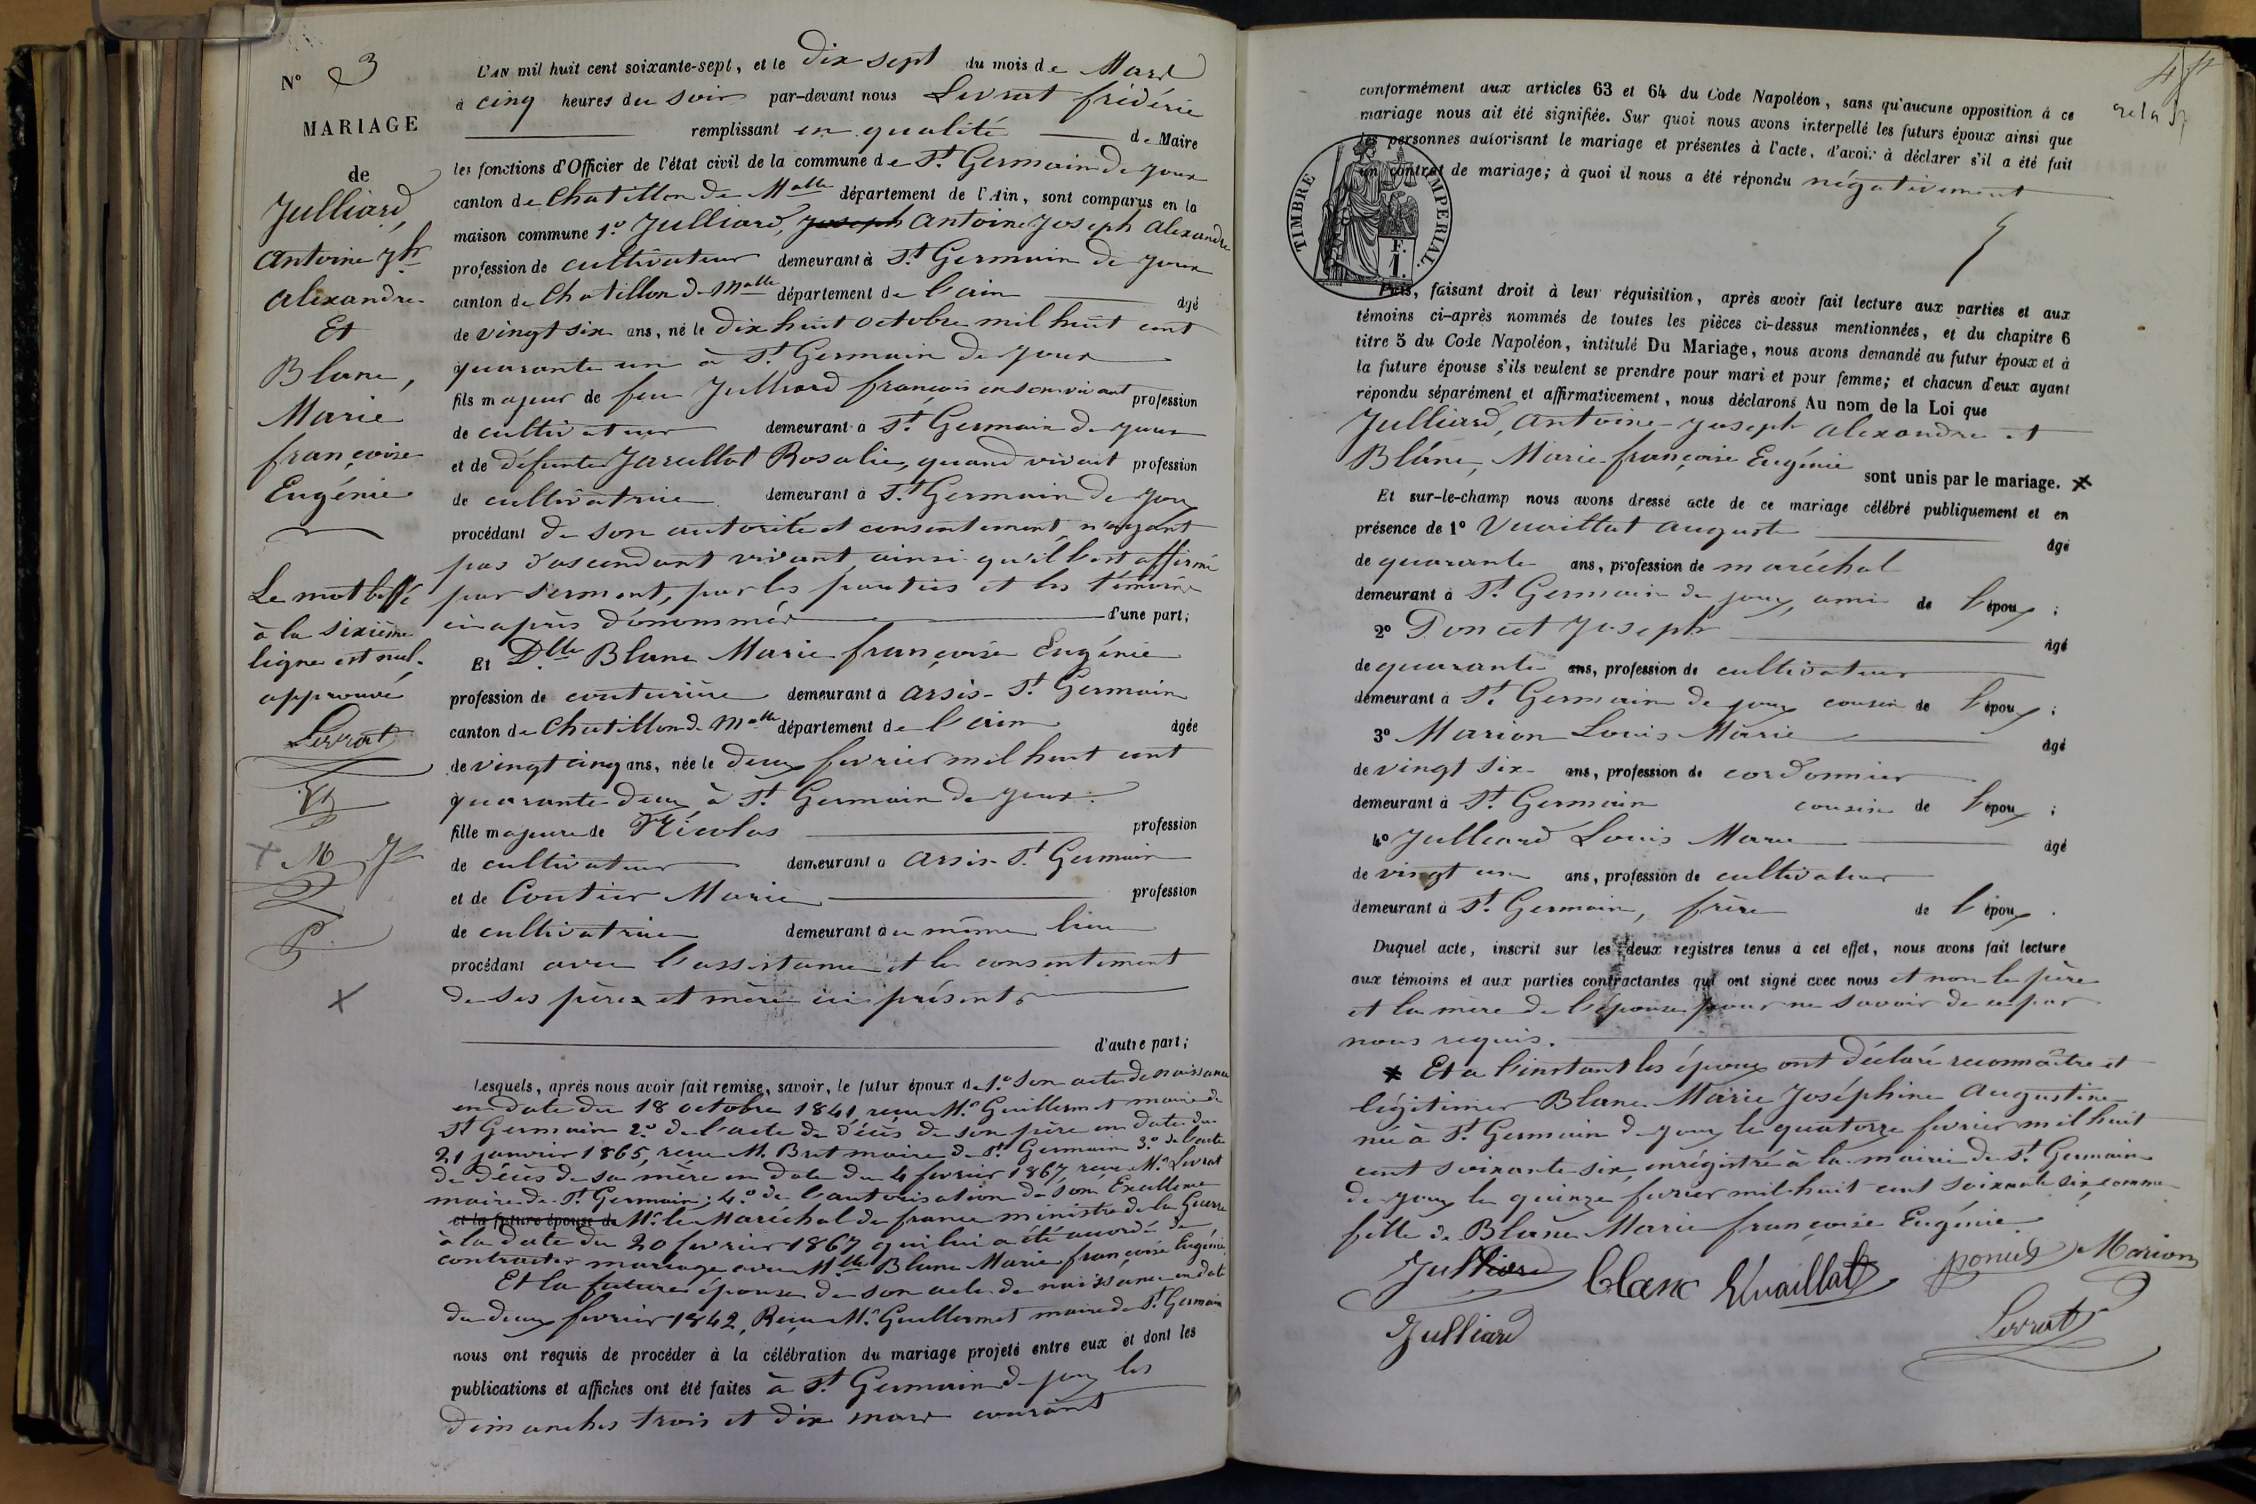 N° 3
MARIAGE
de
Julliard,
Antoine Jh
Alexandre
Et
Blanc,
Marie
françoise
Eugénie
Le mot biffé
à la sixième
ligne est nul.
approuvé
Levrat
L'AN mil huit cent soixante-sept, et le dix sept du mois de Mars
à cinq heures du soir par-devant nous Levrat frédéric
remplissant en qualité de Maire
les fonctions d'Officier de l'état civil de la commune de St Germain de Joux
canton de Chatillon de Malle département de l'Ain, sont comparus en la
maison commune 1° Julliard, Joseph Antoine Joseph Alexandre
profession de cultivateur demeurant à St Germain de Joux
canton de Chatillon de Malle département de l'ain âgé
de vingt six ans, né le dix huit octobre mil huit cent
quarante un à St Germain de Joux
fils majeur de feu Julliard françois en son vivant profession
de cultivateur demeurant à St Germain de Joux
et de défunte Rosalie, quand vivait profession
de cultivatrice demeurant à St Germain de Joux
procédant de son autorité et consentement, n'ayant
pas d'ascendant vivant, ainsi qu'il l'est affirmé
par serment, par les parties et les témoins
ci après dénommés d'une part;
Et Dlle Blanc Marie françoise Eugénie
profession de couturière demeurant à arsis-St Germain
canton de Chatillon de Malle département de l'ain âgée
de vingt cinq ans, née le deux fevrier mil huit cent
quarante deux à St Germain de Joux.
fille majeure de Nicolas profession
de cultivateur demeurant à arsis-St Germain
et de Coutier Marie profession
de cultivatrice demeurant au même lieu
procédant avec l'assistance et le consentement
de ses père et mère ici présents
d'autre part;
Lesquels, après nous avoir fait remise, savoir, le futur époux de 1° Son acte de naissance
en date du 18 octobre 1841, reçu Mr Guillermet maire de
St Germain 2° de l'acte de décès de son père en date du
21 janvier 1865, reçu M. Brut maire de St Germain 3° de l'acte
de décès de sa mère en date du 4 fevrier 1867, reçu Mr Levrat
maire de St Germain; 4° de l'autorisation de Son Excellence
et la future épouse de Mr le Maréchal de france ministre de la Guerre
à la date du 20 fevrier 1867 qui lui a été accordé de
contracter mariage avec Mlle Blanc Marie françoise Eugénie
Et la future épouse de son acte de naissance en date
du deux fevrier 1842, Reçu Mr Guillermet maire de St Germain
nous ont requis de procéder à la célébration du mariage projeté entre eux et dont les
publications et affiches ont été faites à St Germain de Joux les
dimanches trois et dix mars courant
conformément aux articles 63 et 64 du Code Napoléon, sans qu'aucune opposition à ce
mariage nous ait été signifiée. Sur quoi nous avons interpellé les futurs époux ainsi que
les personnes autorisant le mariage et présentes à l'acte, d'avoir à déclarer s'il a été fait
un contrat de mariage; à quoi il nous a été répondu négativement
TIMBRE IMPERIAL
F.
1.
Puis, faisant droit à leur réquisition, après avoir fait lecture aux parties et aux
témoins ci-après nommés de toutes les pièces ci-dessus mentionnées, et du chapitre 6
titre 5 du Code Napoléon, intitulé Du Mariage, nous avons demandé au futur époux et à
la future épouse s'ils veulent se prendre pour mari et pour femme; et chacun d'eux ayant
répondu séparément et affirmativement, nous déclarons Au nom de la Loi que
Julliard, Antoine Joseph Alexandre et
Blanc, Marie françoise Eugénie sont unis par le mariage. X
Et sur-le-champ nous avons dressé acte de ce mariage célébré publiquement et en
présence de 1° Vuaillat auguste âgé
de quarante ans, profession de maréchal
demeurant à St Germain de Joux, ami de l'époux;
2° Poncet Joseph âgé
de quarante ans, profession de cultivateur
demeurant à St Germain de Joux cousin de l'époux;
3° Marion Louis Marie âgé
de vingt six ans, profession de cordonnier
demeurant à St Germain cousin de l'époux;
4° Julliard Louis Marie âgé
de vingt un ans, profession de cultivateur
demeurant à St Germain, frère de l'époux.
Duquel acte, inscrit sur les deux registres tenus à cet effet, nous avons fait lecture
aux témoins et aux parties contractantes qui ont signé avec nous et non le père
et la mère de l'épouse pour ne savoir de ce par
nous requis.
X Et a l'instant les époux ont déclaré reconnaître et
légitimer Blanc Marie Joséphine Augustine
née à St Germain de Joux le quatorze fevrier mil huit
cent soixante six, enrégistré à la mairie de St Germain
de Joux le quinze fevrier mil huit cent soixante six, comme
fille de Blanc Marie françoise Eugénie.
Julliard blanc Vuaillat poncet Marion
Julliard Levrat